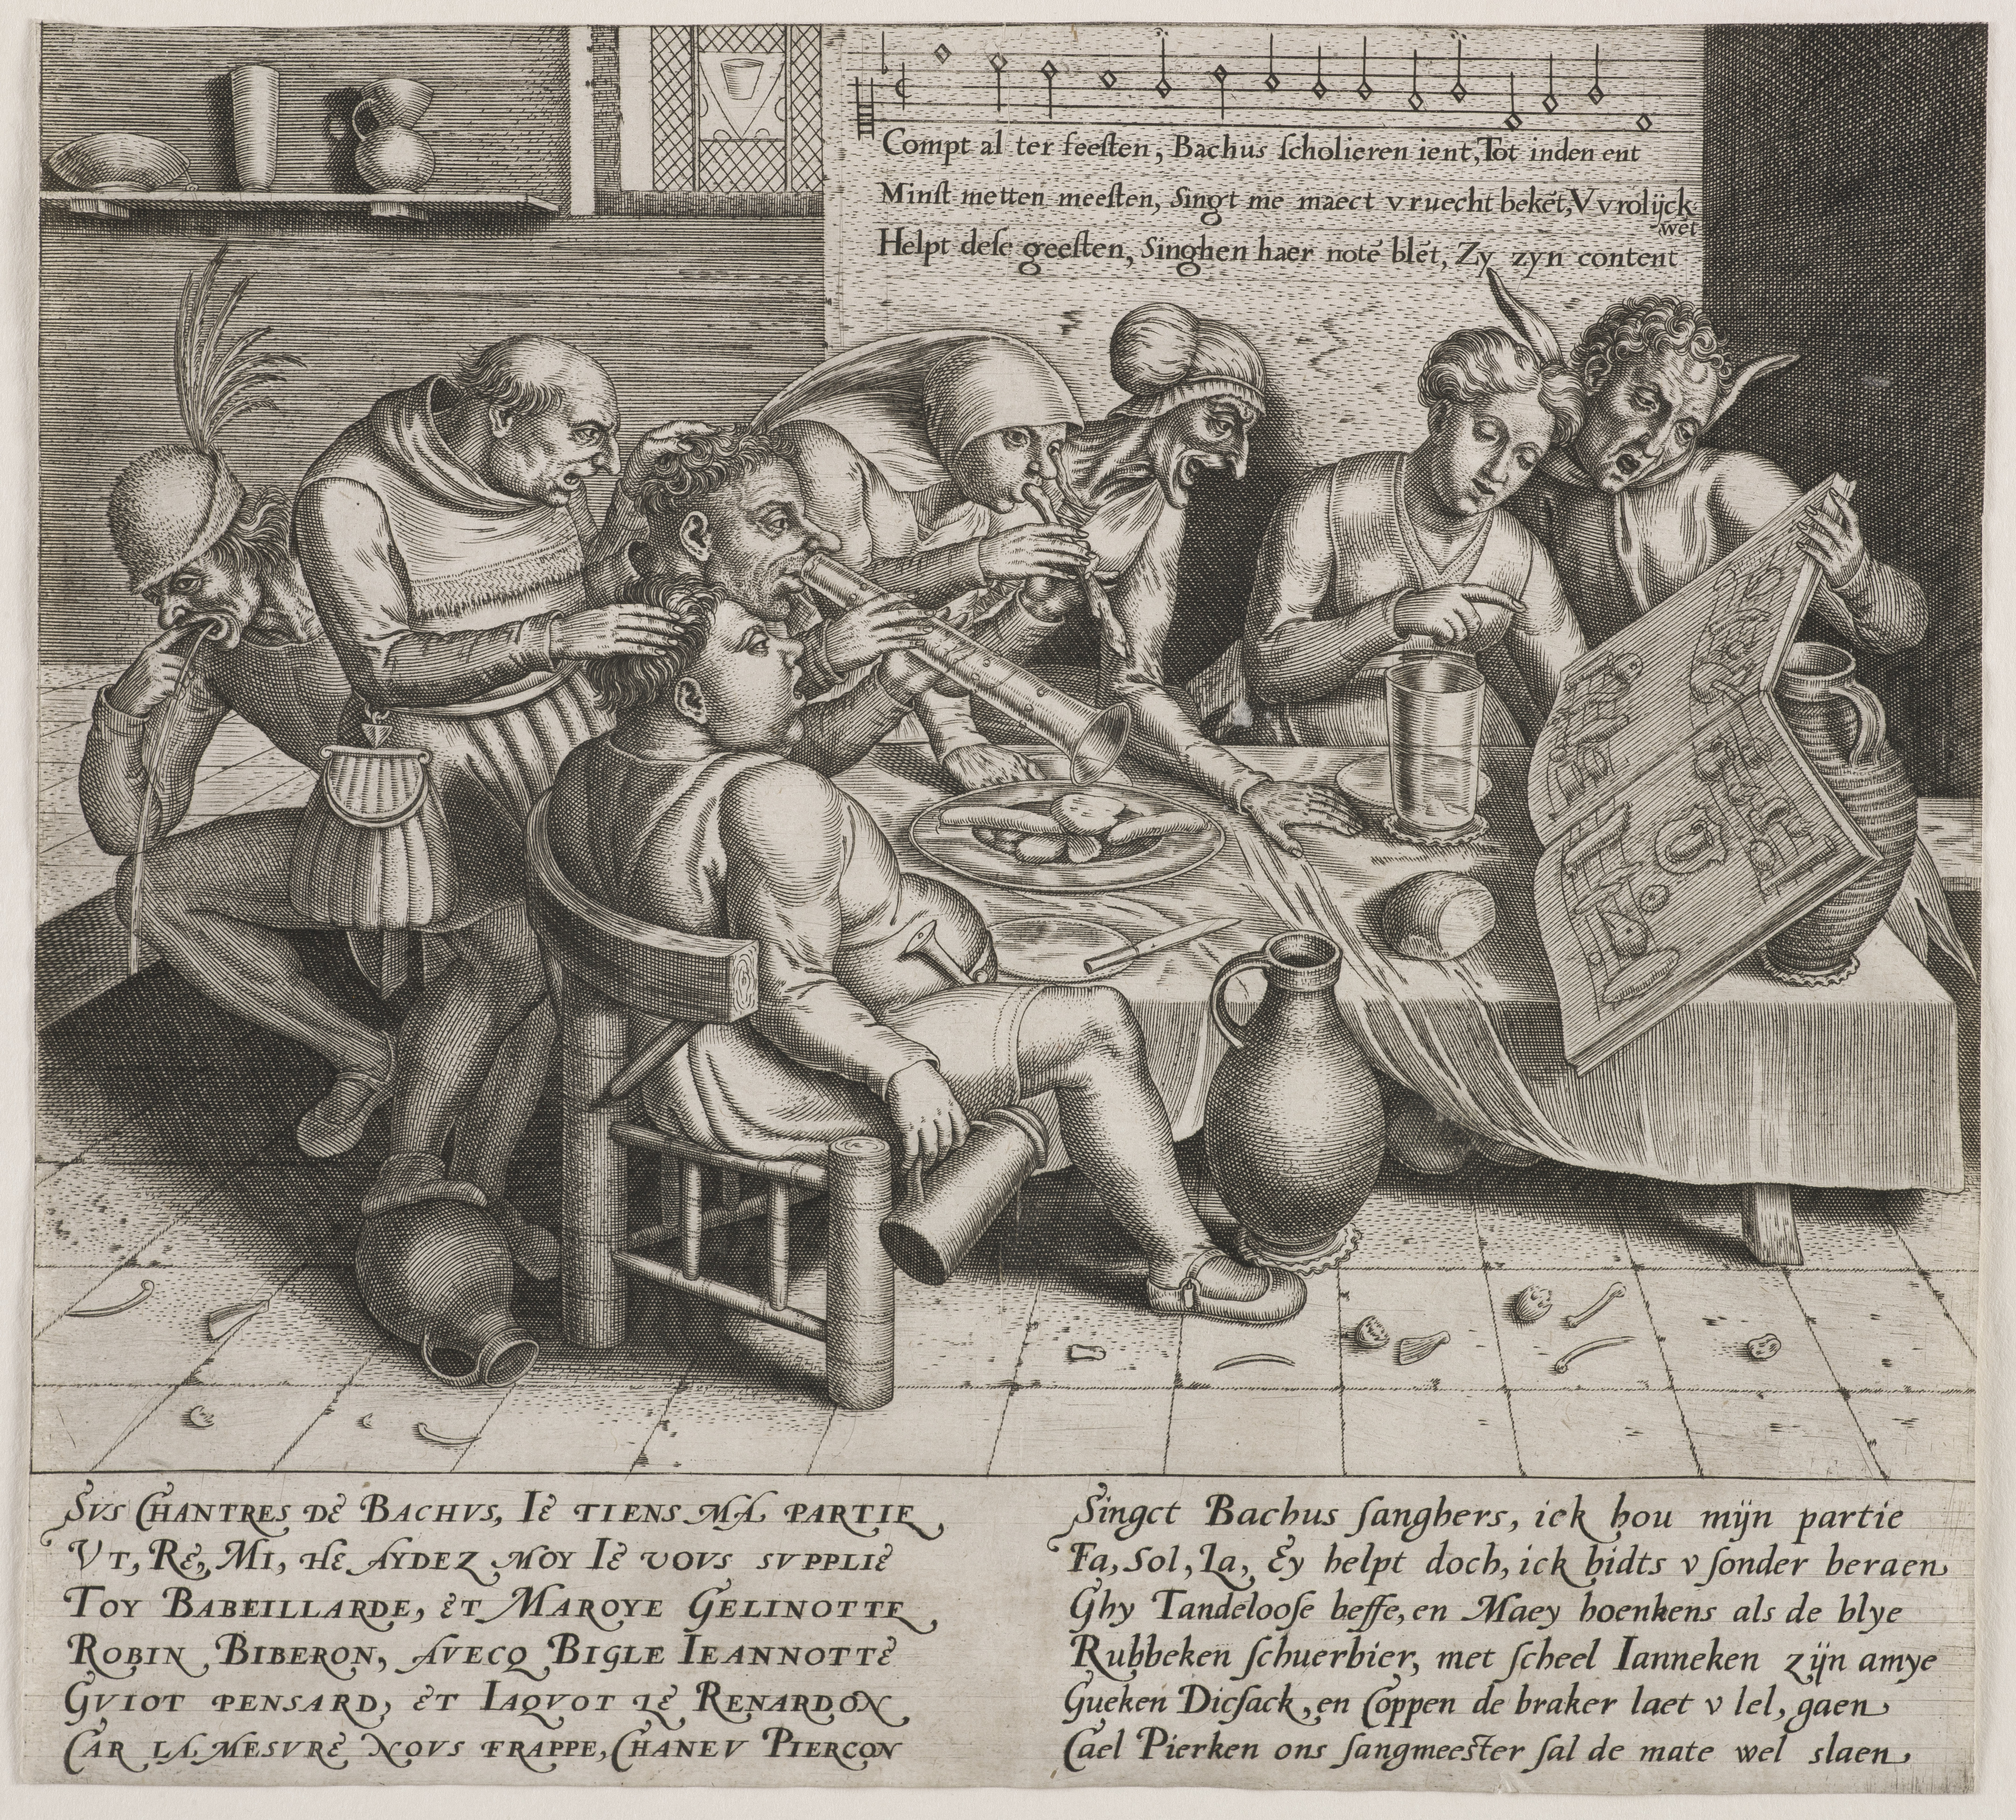 Compt al ter feeſten, Bachus ſcholieren ient, Tot inden ent
Minſt metten meeſten, Singt me maect vruecht bekēt, Vvrolijck
wēt
Helpt deſe geeſten, Singhen haer notē blēt, Zy zyn content
SVS CHANTRES DE BACHVS, IE TIENS MA PARTIE
VT, RE, MI, HE AYDEZ MOY IE VOVS SVPPLIE
TOY BABEILLARDE, ET MAROYE GELINOTTE
ROBIN BIBERON, AVECQ BIGLE IEANNOTTE
GVIOT PENSARD, ET IAQVOT LE RENARDON
CAR LA MESVRE NOVS FRAPPE, CHANEV PIERCON
Singct Bachus ſanghers, ick hou mijn partie
Fa, Sol, La, Ey helpt doch, ick bidts v ſonder beraen
Ghy Tandelooſe beffe, en Maey hoenkens als de blye
Rubbeken ſchuerbier, met ſcheel Ianneken zijn amye
Gueken Dicſack, en Coppen de braker laet v lel, gaen
Cael Pierken ons ſangmeeſter ſal de mate wel slaen